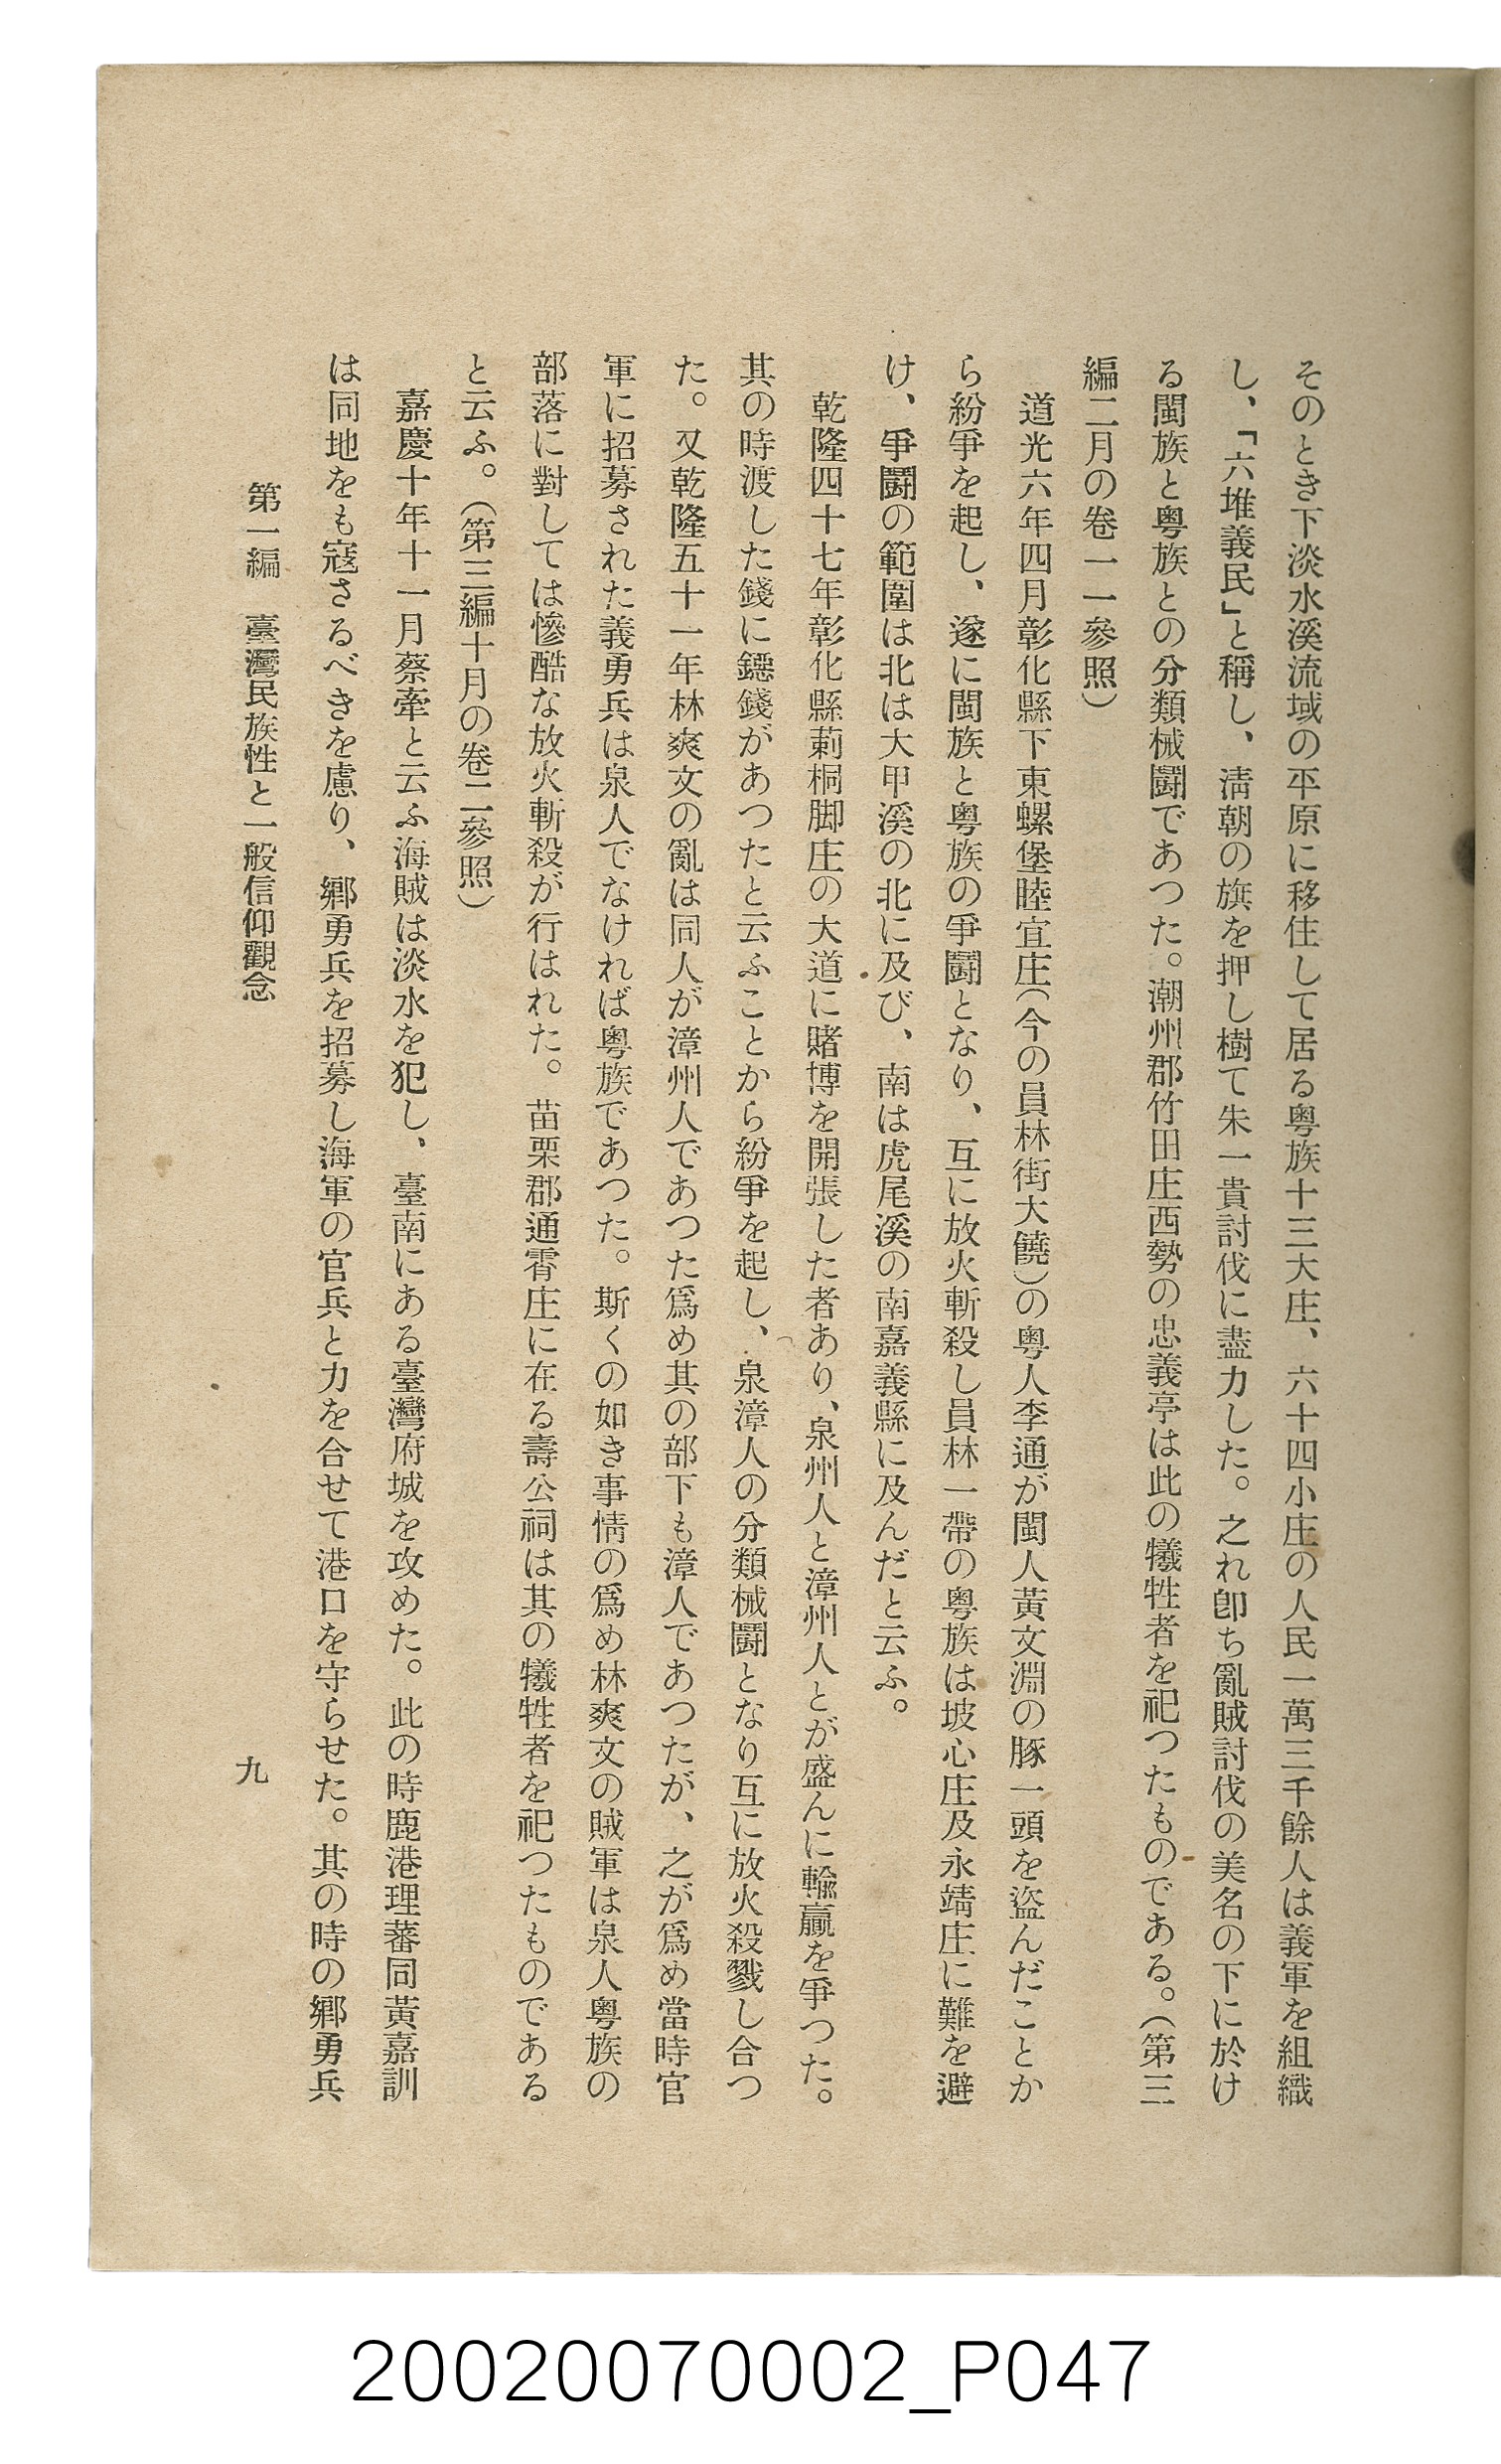 そのとき下淡水溪流域の平原に移住して居る粤族十三大庄、六十四小庄の人民一萬三千餘人は義軍を組織
し、「六堆義民」と稱し、淸朝の旗を押し樹て朱一貴討伐に盡力した。之れ卽ち亂賊討伐の美名の下に於け
る閩族と粤族との分類械鬪であつた。潮州郡竹田庄西勢の忠義亭は此の犧牲者を祀つたものである。（第三
編二月の卷一一參照）
道光六年四月彰化縣下東螺堡睦宜庄（今の員林街大饒）の粤人李通が閩人黃文淵の豚一頭を盜んだことか
ら紛爭を起し、遂に閩族と粤族の爭鬪となり、互に放火斬殺し員林一帶の粤族は坡心庄及永靖庄に難を避
け、爭鬪の範圍は北は大甲溪の北に及び、南は虎尾溪の南嘉義縣に及んだと云ふ。
乾隆四十七年彰化縣莿桐脚庄の大道に賭博を開張した者あり、泉州人と漳州人とが盛んに輸贏を爭つた。
其の時渡した錢に鐚錢があつたと云ふことから紛爭を起し、泉漳人の分類械鬪となり互に放火殺戮し合つ
た。又乾隆五十一年林爽文の亂は同人が漳州人であつた爲め其の部下も漳人であつたが、之が爲め當時官
軍に招募された義勇兵は泉人でなければ粤族であつた。斯くの如き事情の爲め林爽文の賊軍は泉人粤族の
部落に對しては慘酷な放火斬殺が行はれた。苗栗郡通霄庄に在る壽公祠は其の犧牲者を祀つたものである
と云ふ。（第三編十月の卷二參照）
嘉慶十年十一月蔡牽と云ふ海賊は淡水を犯し、臺南にある臺灣府城を攻めた。此の時鹿港理蕃同黃嘉訓
は同地をも寇さるべきを慮り、鄕勇兵を招募し海軍の官兵と力を合せて港口を守らせた。其の時の鄕勇兵
第一編　臺灣民族性と一般信仰觀念
九
20020070002_P047